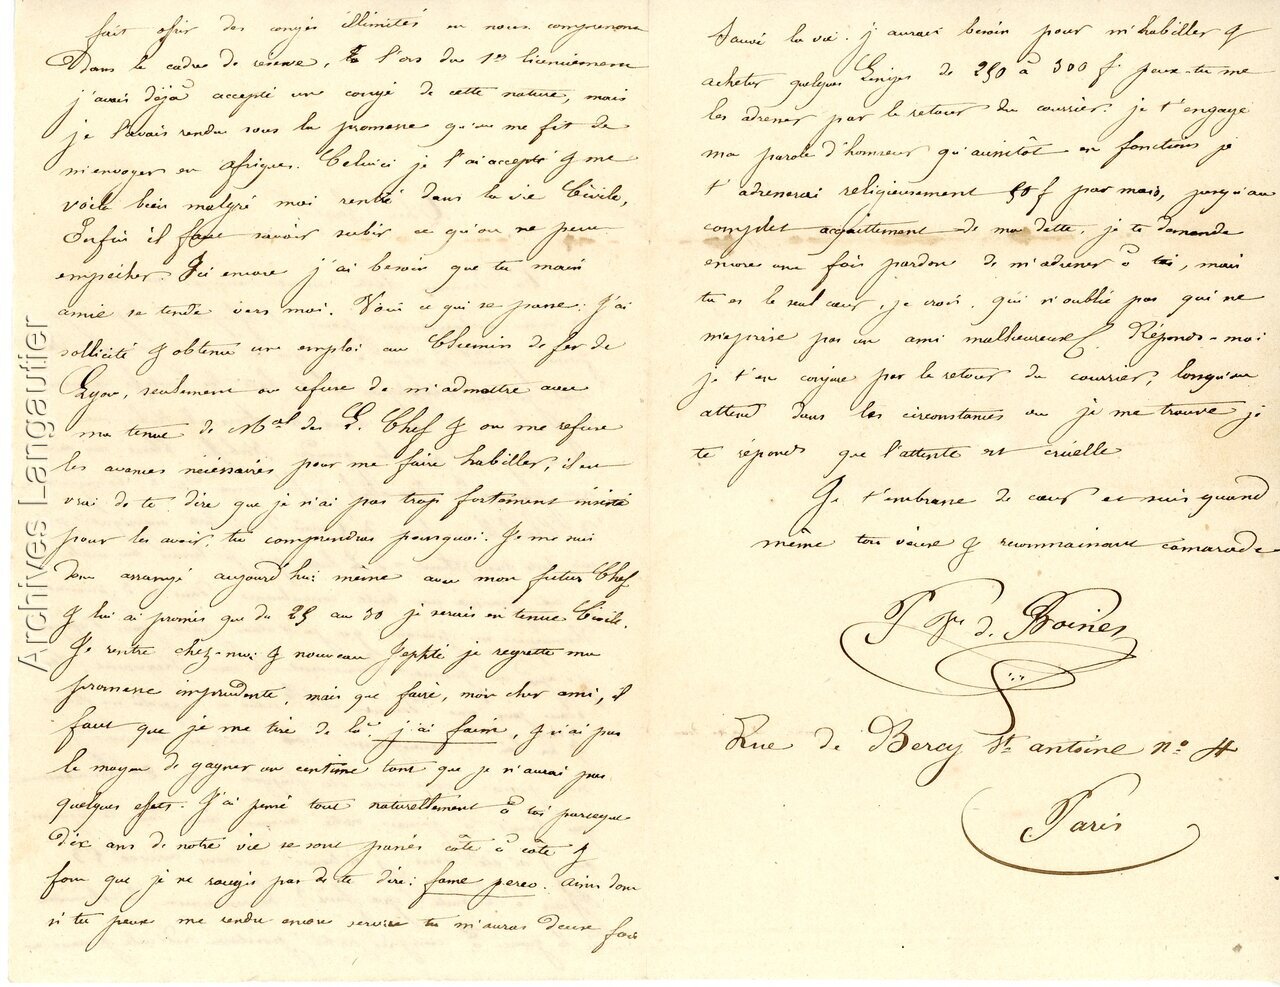 fait offrir des congés illimités en nous comprenant
dans le cadre de reserve, à l'ors du 1er licenciement
j'avais déjà accepté un congé de cette nature, mais
je l'avais rendu sous la promesse qu'on me fit de
m'envoyer en afrique. Celui ci je l'ai accepté & me
voilà bien malgré moi rentré dans la vie Civile,
Enfin il faut savoir subir ce qu'on ne peut
empêcher. Ici encore j'ai besoin que ta main
amie se tende vers moi. Voici ce qui se passe: J'ai
sollicité & obtenu un emploi au Chemin de fer de
Lyon, seulement on refuse de m'admettre avec
ma tenue de Mal des L. Chef & on me refuse
les avances nécessaires pour me faire habiller, il est
vrai de te dire que je n'ai pas trop fortement insisté
pour les avoir, tu comprendras pourquoi. Je me suis
donc arrangé aujourd'hui même avec mon futur Chef
& lui ai promis que du 25 au 30 je serais en tenue Civile.
Je rentre chez-moi & nouveau Jephté je regrette ma
promesse imprudente, mais que faire, mon cher ami, il
faut que je me tire de là. j'ai faim, & n'ai pas
le moyen de gagner un centime tant que je n'aurai pas
quelques effets. J'ai pensé tout naturellement à toi parceque
dix ans de notre vie se sont passés côte à côte &
font que je ne rougis pas de te dire: fame pereo. ainsi donc
si tu peux me rendre encore service tu m'auras deux fois
Sauvé la vie. j'aurais besoin pour m'habiller &
acheter quelques Linges de 250 à 300 f. peux-tu me
les adresser par le retour du courrier. je t'engage
ma parole d'honneur qu'aussitôt en fonctions je
t'adresserai religieusement 50 f par mois, jusqu'au
complet acquittement de ma dette. je te demande
encore une fois pardon de m'adresser à toi, mais
tu es le seul cœur, je crois, qui n'oublie pas qui ne
méprise pas un ami malheureux. Réponds-moi
je t'en conjure par le retour du courrier, lorsqu'on
attend dans les circonstances ou je me trouve je
te réponds que l'attente est cruelle
Je t'embrasse de cœur et suis quand
même ton vieux & reconnaissant camarade
de Broines
Rue de Bercy St antoine no 4
Paris
Archives Langautier